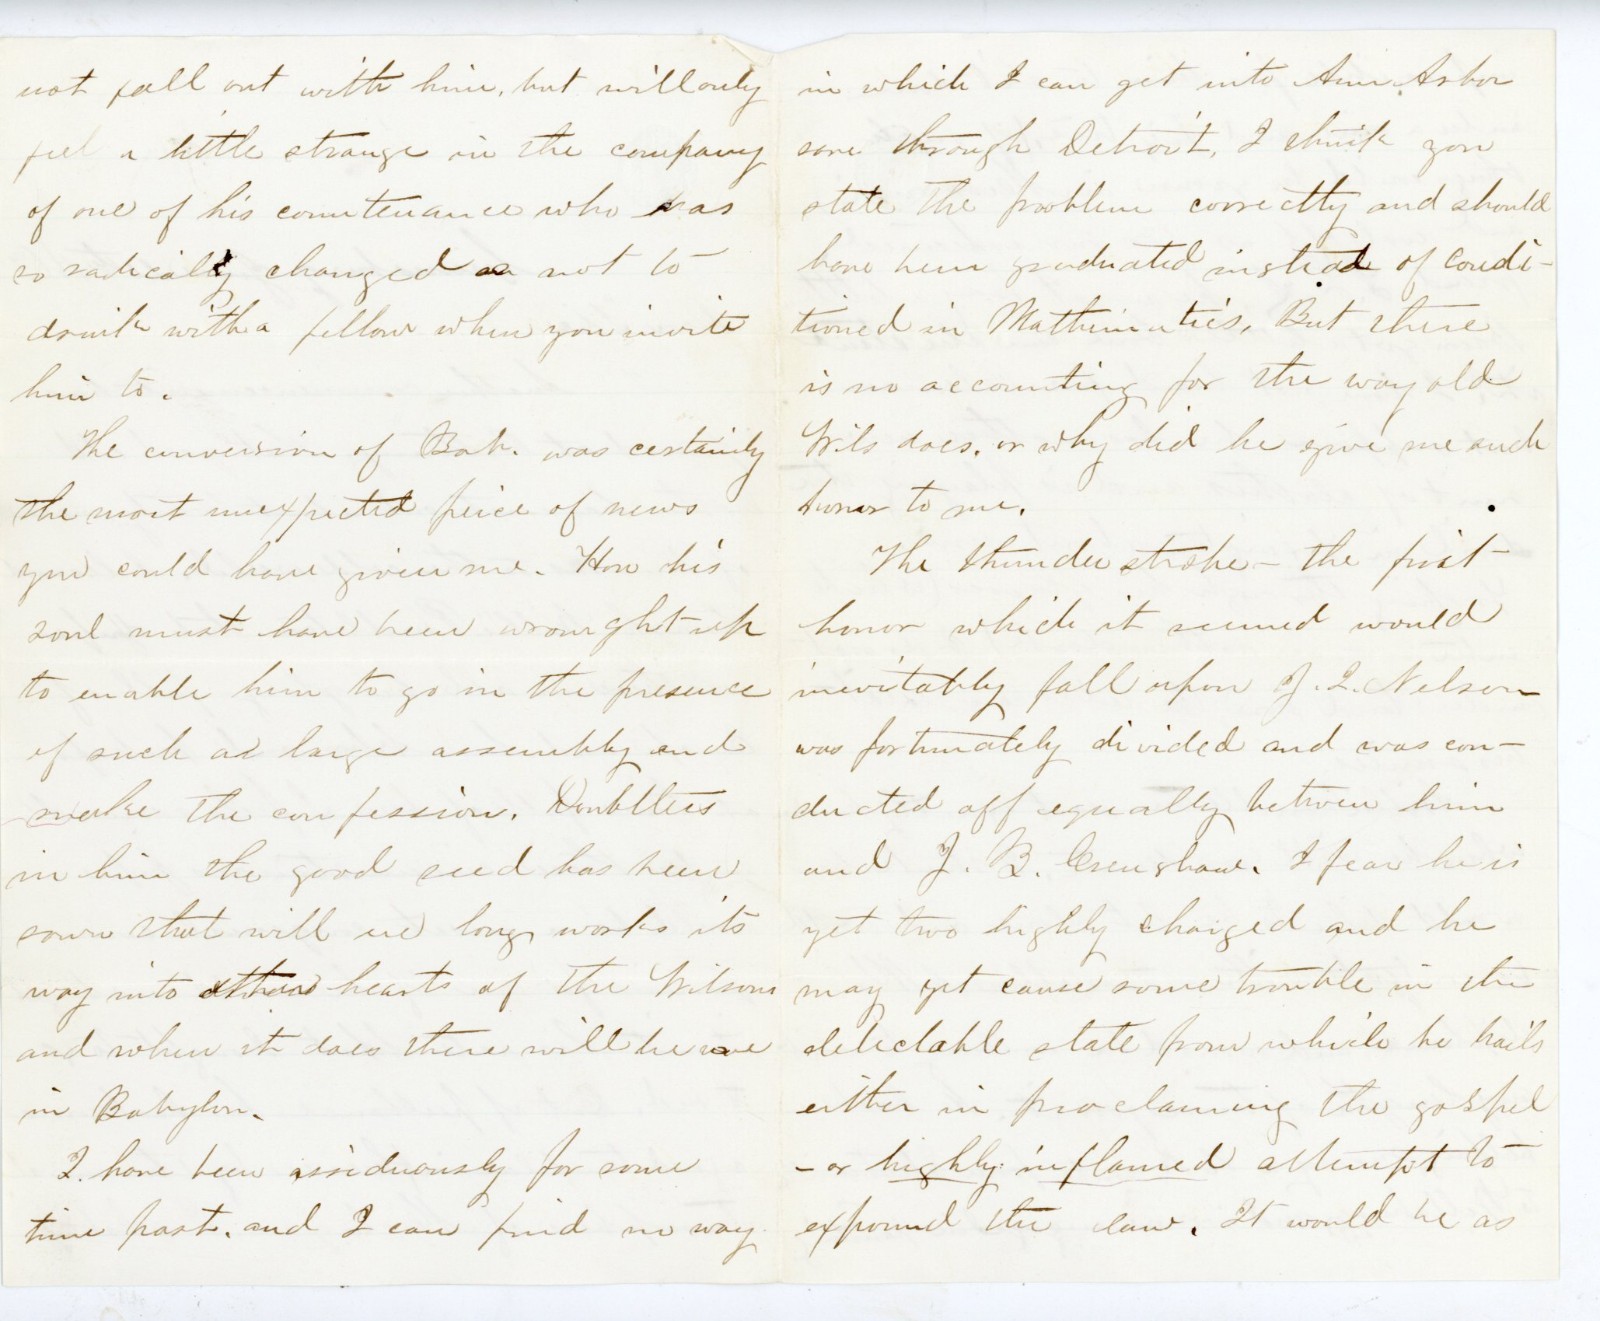 not fall out with him, but will only
feel a little strange in the company
of one of his countenance who was
so radically changed as not to
drink with a fellow when you invite
him to.
The conversion of Bob. was certainly
the most unexpected peice of news
you could have given me. How his
soul must have been wrought up
to enable him to go in the presence
of such as large assembly and
make the confession. Doubtless
in him the good seed has been
sown that will ere long works its
way into other hearts of the Wilsons
and when it does there will be
in Babylon.
I have been assiduously for some
time past. and I can find no way
in which I can get into Ann Arbor
save through Detroit. I think you
state the problem correctly and should
have been graduated instead of condi-
tioned in Mathimatics. But there
is no accounting for the way old
Wils does. or why did he give me such
honor to me.
The thunder stroke – the first
honor which it seemed would
inevitably fall upon J. I. Nelson
was fortunately divided and was con-
ducted off equally between him
and J. B. Crenshaw. I fear he is
yet two highly charged and he
may yet cause some trouble in the
delectable state from which he hails
either in proclaiming the gospel
– or highly inflamed attempt to
expound the law. It would be as